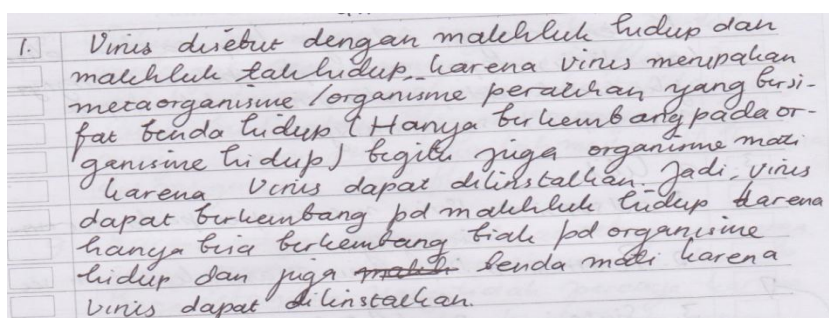 1. Virus disebut dengan makhluk hidup dan
makhluk tak hidup, karena virus merupakan
metaorganisme /organisme peralihan yang bersi-
fat benda hidup (Hanya berkembang pada or-
ganisme hidup) begitu juga organisme mati
karena virus dapat dikinstalkan. Jadi, virus
dapat berkembang pd makhluk hidup karena
hanya bisa berkembang biak pd organisme
hidup dan juga benda mati karena
virus dapat dikinstalkan.